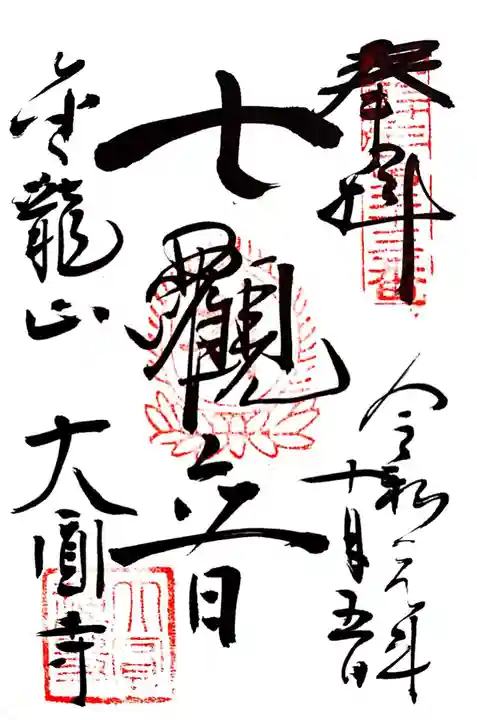 奉拝
令和元年
十月五日
七観音
金龍山
大圓寺